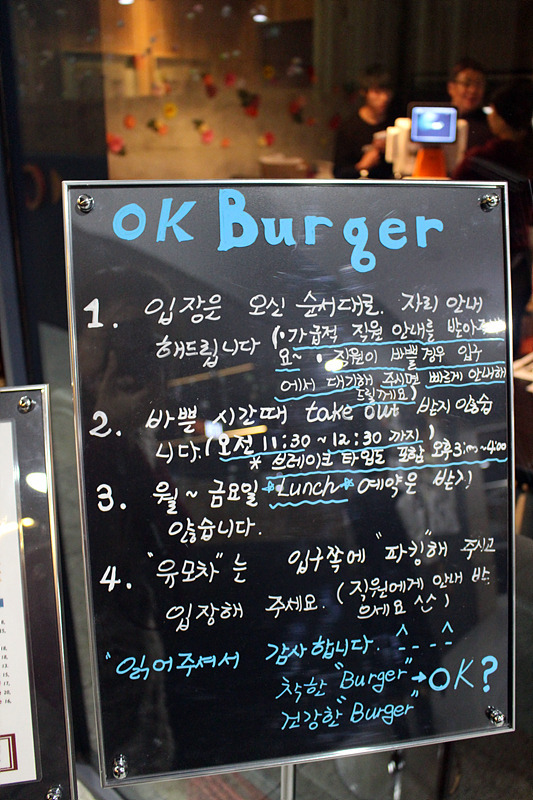 OK Burger
1. 입장은 오신 순서대로. 자리 안내
해드립니다 (·가급적 직원 안내를 받아주세
요~ · 직원이 바쁠 경우 입구
에서 대기해 주시면 빠르게 안내해
드릴께요)
2. 바쁜 시간때 take out 받지 않습
니다. (오전 11:30 ~ 12:30 까지)
* 브레이크 타임도 포함 오후 3:00~4:00
3. 월 ~ 금요일 *Lunch* 예약은 받지
않습니다.
4. "유모차"는 입구쪽에 "파킹"해 주시고
입장해 주세요. (직원에게 안내 받
으세요 ^^)
"읽어주셔서 감사합니다. ^--^
착한 "Burger" → OK?
건강한 "Burger"